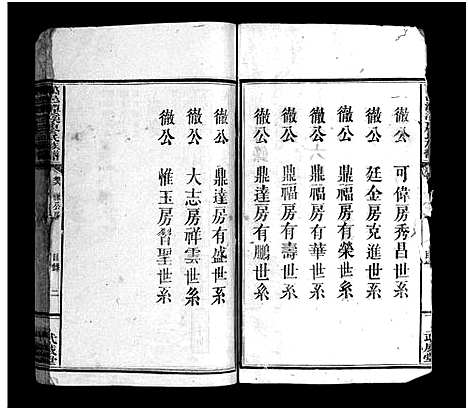 徹公 可偉房秀昌世系
徹公 廷金房克進世系
徹公 鼎福房有榮世系
徹公 鼎福房有華世系
徹公 鼎福房有壽世系
徹公 鼎達房有鵬世系
徹公 鼎達房有盛世系
徹公 大志房祥雲世系
徹公 惟玉房智聖世系
目錄
二
武威堂